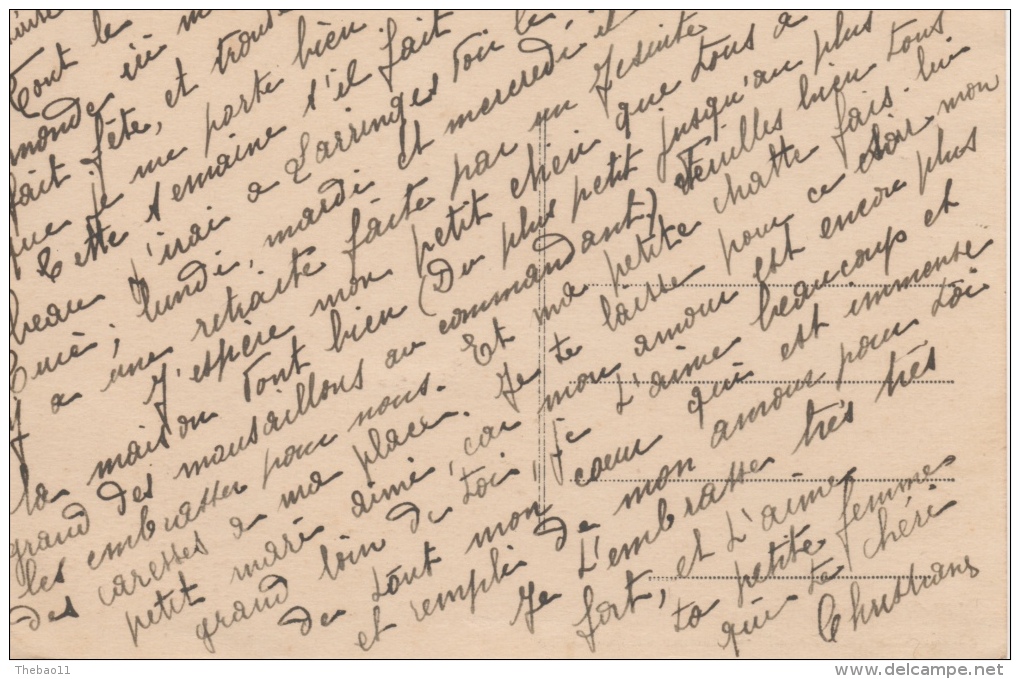 Tout le
monde ici m
fait fête, et trouve
que je me porte bien.
Cette semaine s'il fait
beau j'irai a Larringes voir le
Curé; lundi, mardi et mercredi il
y a une retraite faite par un Jesuite
J'espère mon petit chien que tous a
la maison vont bien (Du plus petit jusqu'au plus
grand des mousaillons au commandant) veuilles bien tous
les embrasser pour nous. Et ma petite chatte fais lui
des caresses a ma place. Je te laisse pour ce soir mon
petit mari aimé, car mon amour est encore plus
grand loin de toi, je t'aime beaucoup et
de tout mon coeur qui est immense
et rempli de mon amour pour toi
Je t'embrasse très très
fort, et t'aime
ta petite femme
qui te chéri
Christiane
Thebao11
www.delcampe.net